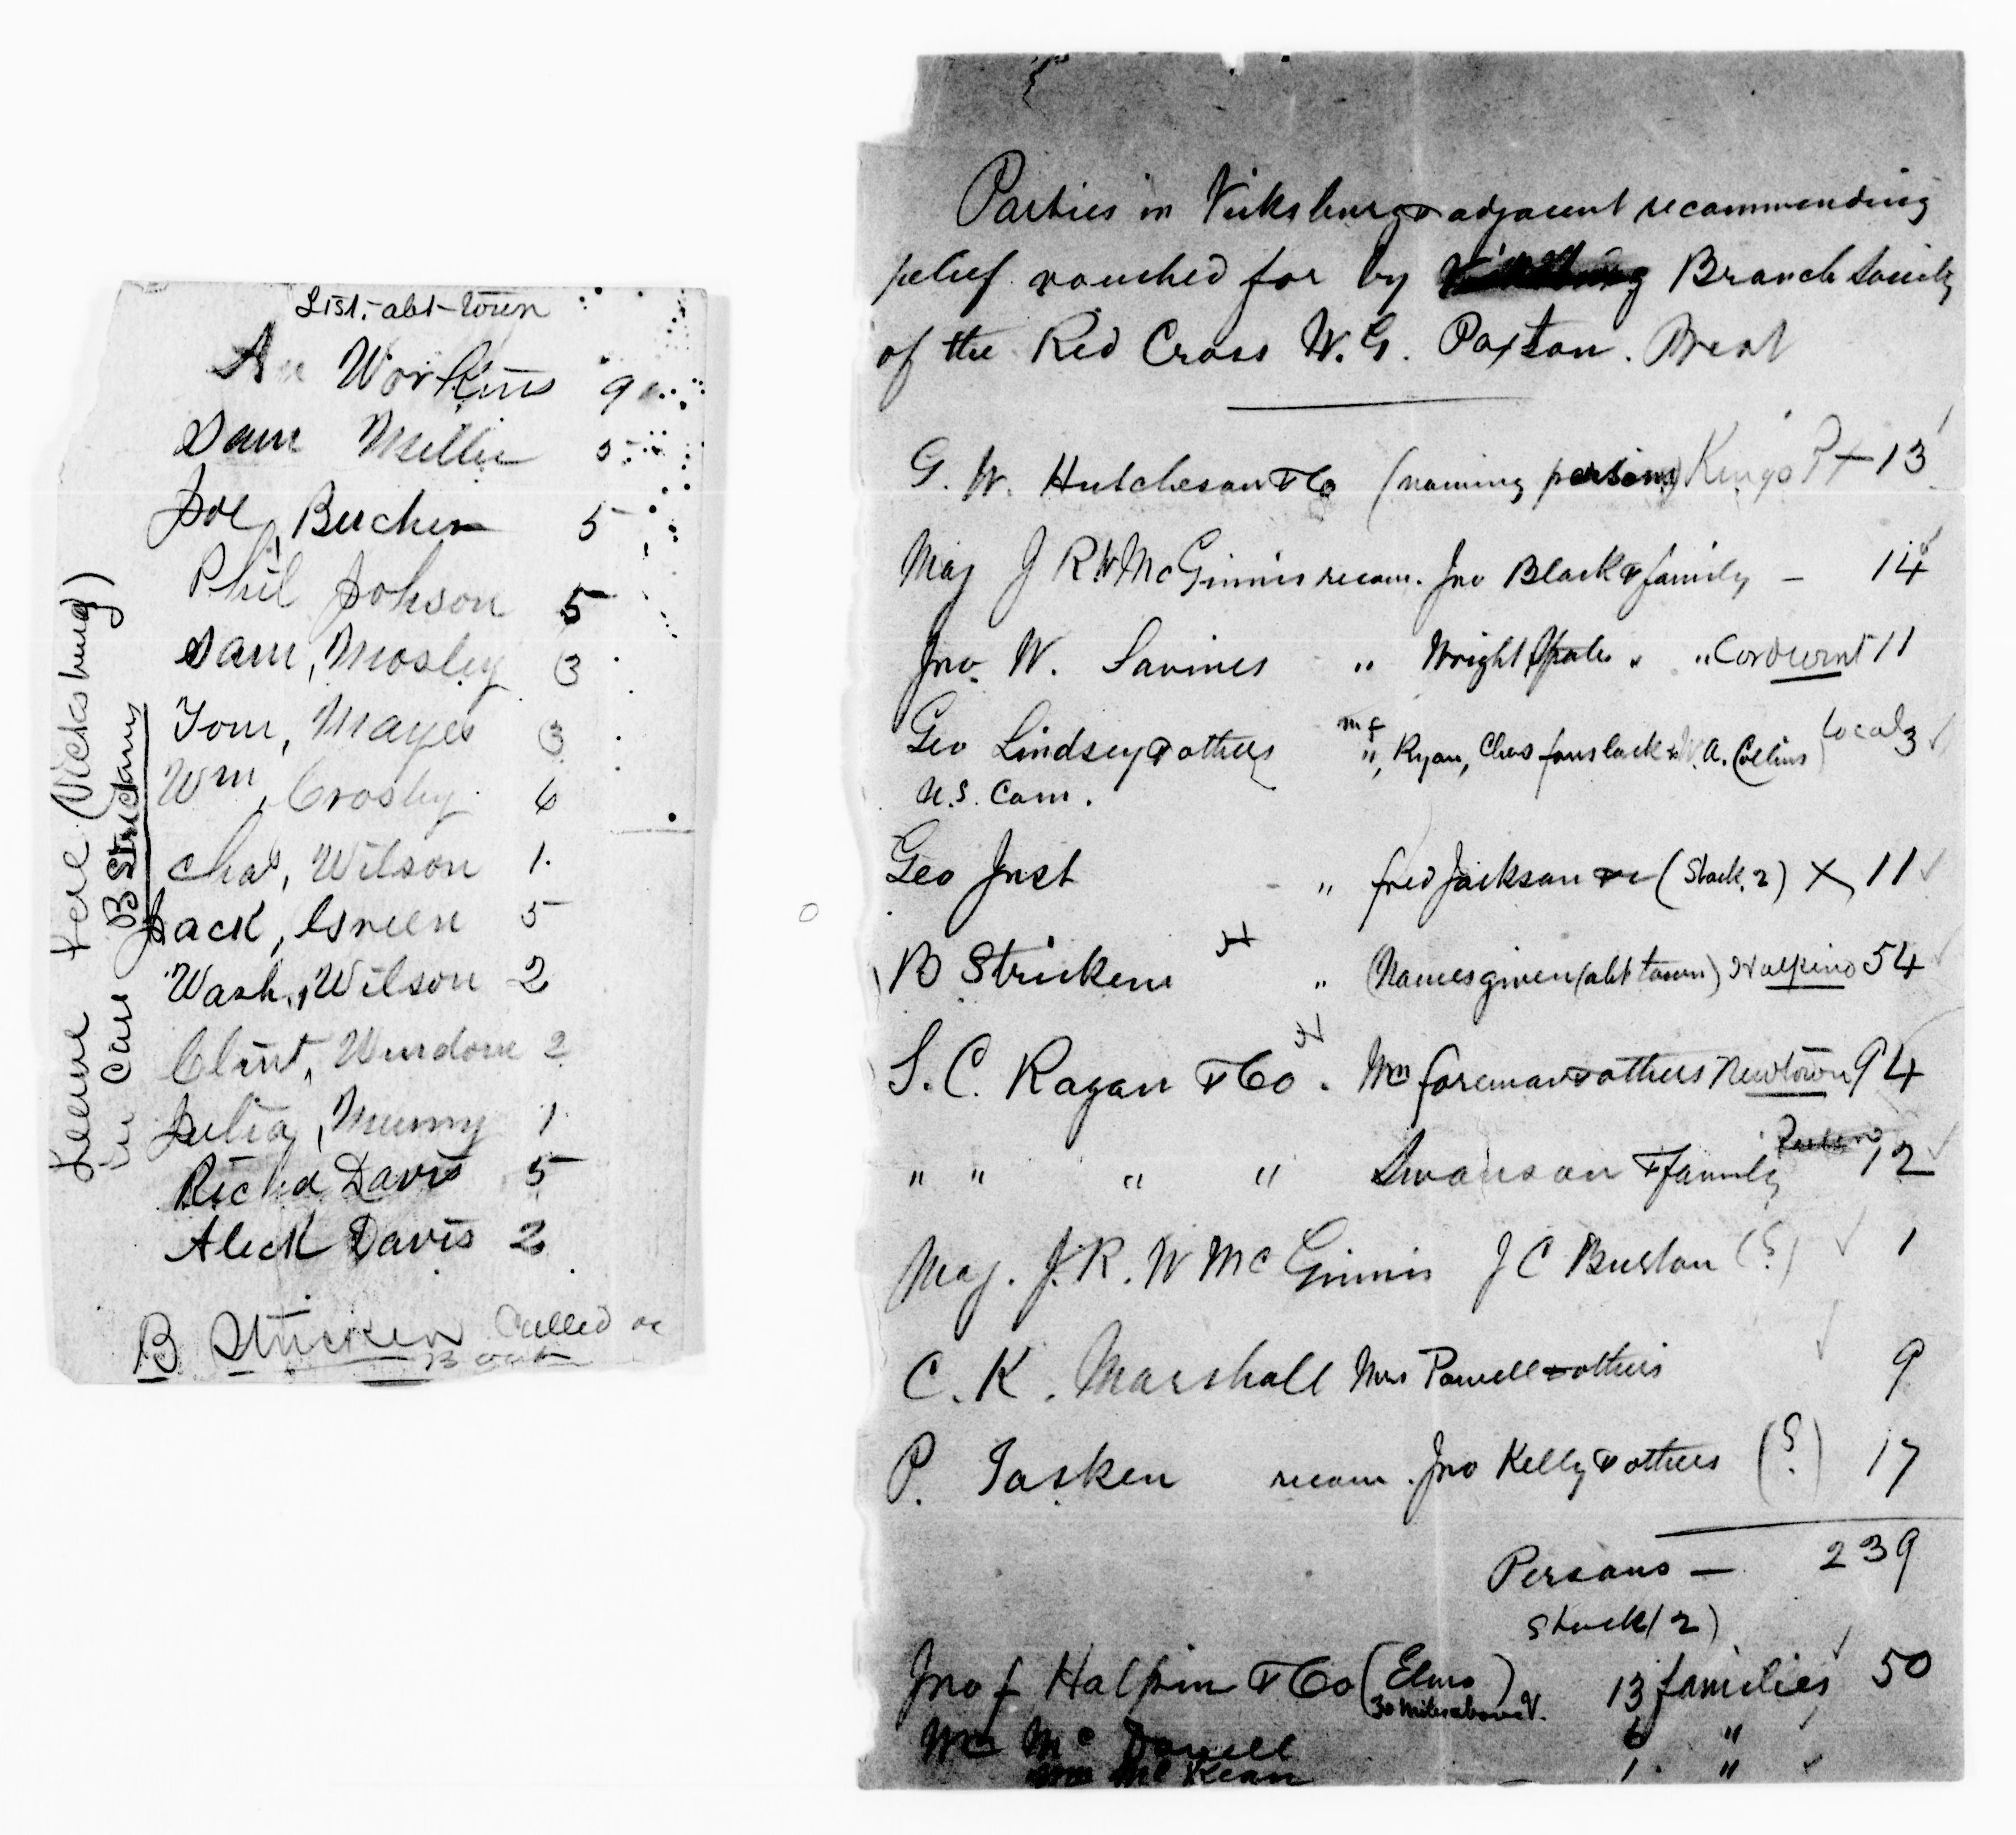 List. abt-town
Workins 9
Sam Miller 5
Joe, Bucher 5
Phil Johson 5
Sam, Mosley 3
Tom, Mayes 3
Wm, Crosby 6
Chas, Wilson 1.
Jack, Green 5
Wash., Wilson 2
Clint, Windom 2
Julia, Mummy 1
Richd Davis 5
Aleck Davis 2
B Stricken Called
Leave here (Vicksburg)
in Care B Strickens
Parties in Vicksburg & adjacent recommending
relief vouched for by Branch Society
of the Red Cross W. G. Paxton. Prest
G. W. Hutcheson & Co (naming persons) Kings Pt 13
Maj J R W McGinnis recom. Jno Black & family - 14
Jno. W. Savines " Wright " " 11
Geo Lindsey & others " Ryan, Chas fonslack & W. A. Collins Local 3
U.S. Com.
Geo Just " fred Jackson (Stock, 2) X 11
B Strickens " (Names given (abt town) Halpins 54
S. C. Ragan & Co. Wm foreman & others Newtown 94
" " " " Swanson & family 12
Maj. J. R. W McGinnis J C Buslon (?) 1
C. K. Marshall Mrs Powell & others 9
P. Tasken recom. Jno Kelly & others (?) 17
Persons — 239
stock (2)
Jno f Halpin & Co (Elms) 13 families 50
30 miles above V.
Mc Dowell 6 "
Mc Kean - 1. "